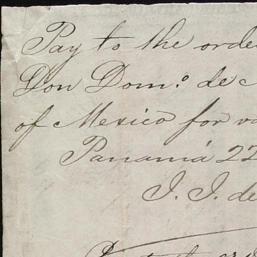 Pay to the orde
Don Dom.º de
of Mexico for va
Panamá 22
J. J. de